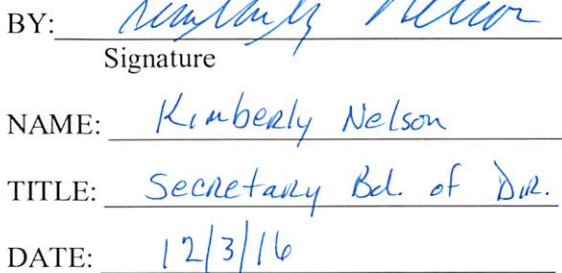 BY: Kimberly Nelson
Signature
NAME: Kimberly Nelson
TITLE: Secretary Bd. of Dir.
DATE: 12/3/16